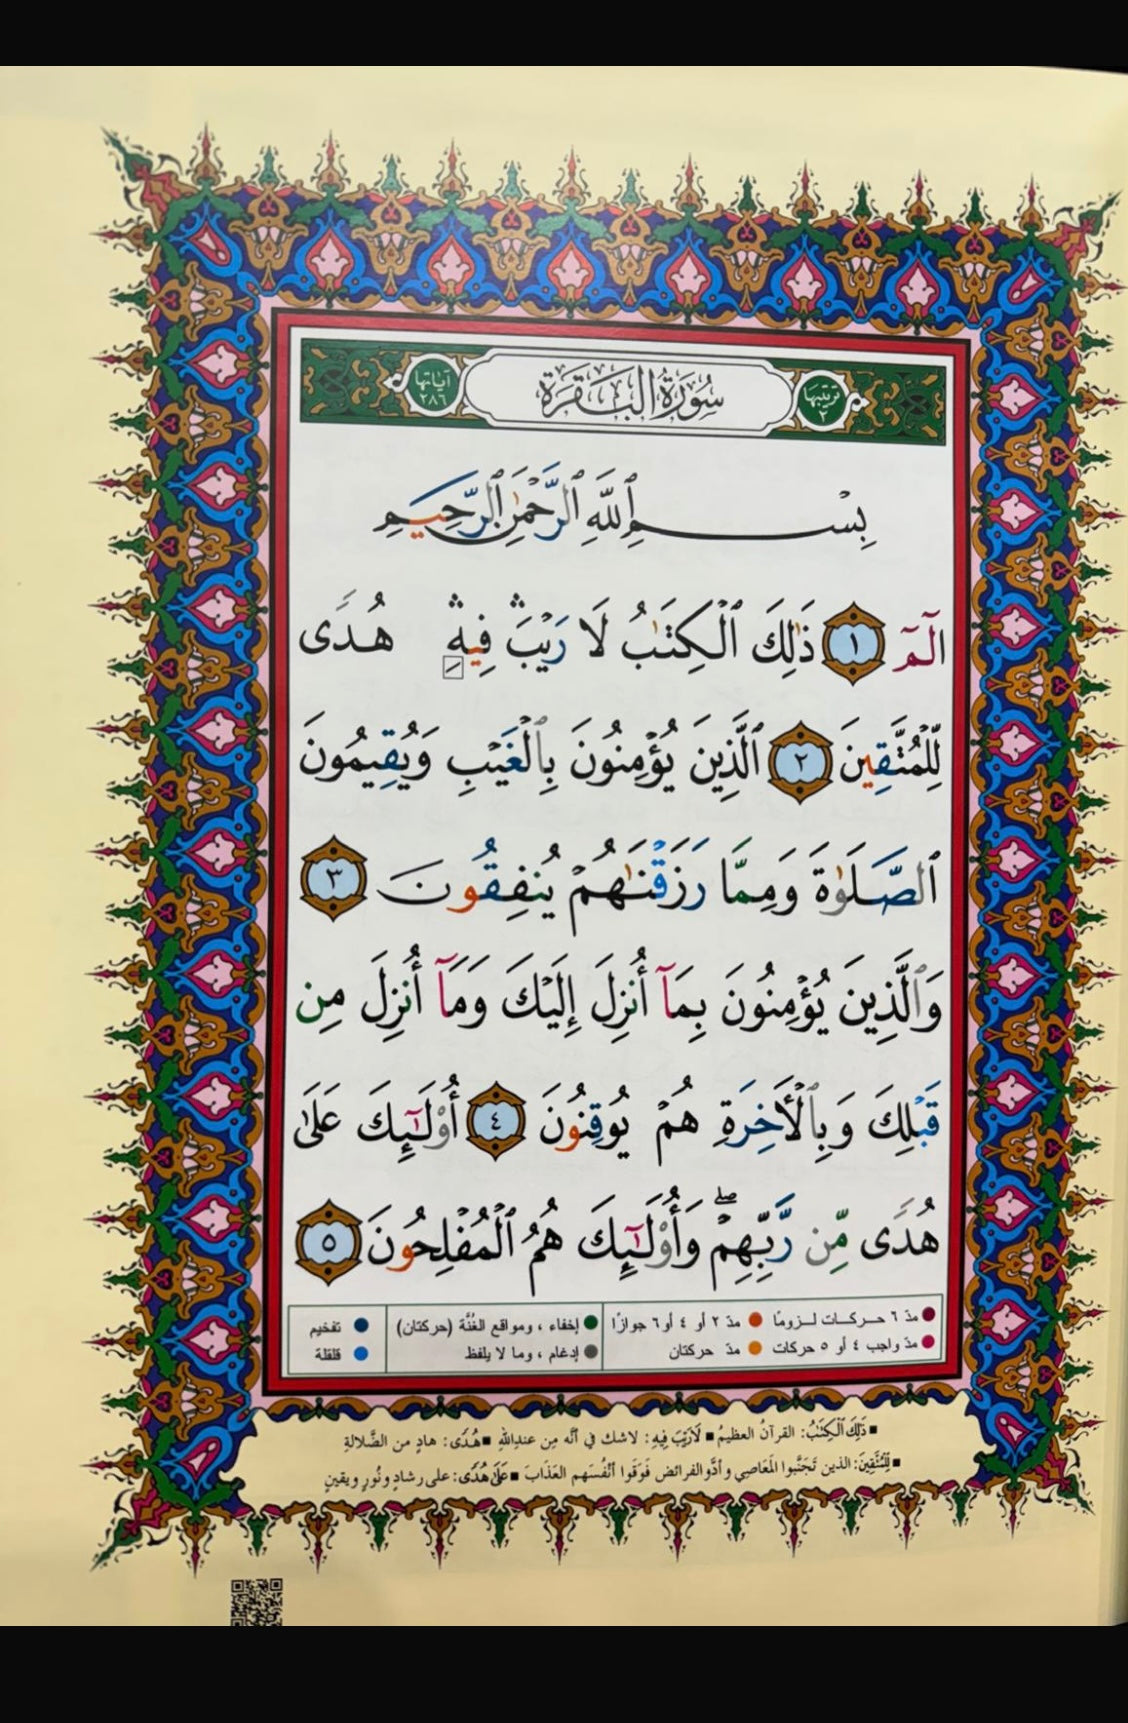 ترتيبها ٢ سُورَةُ الْبَقَرَةِ آياتها ٢٨٦
بِسْمِ ٱللَّهِ ٱلرَّحْمَٰنِ ٱلرَّحِيمِ
الٓمٓ ١ ذَٰلِكَ ٱلْكِتَٰبُ لَا رَيْبَ ۛ فِيهِ ۛ هُدًى
لِّلْمُتَّقِينَ ٢ ٱلَّذِينَ يُؤْمِنُونَ بِٱلْغَيْبِ وَيُقِيمُونَ
ٱلصَّلَوٰةَ وَمِمَّا رَزَقْنَٰهُمْ يُنفِقُونَ ٣
وَٱلَّذِينَ يُؤْمِنُونَ بِمَآ أُنزِلَ إِلَيْكَ وَمَآ أُنزِلَ مِن
قَبْلِكَ وَبِٱلْأَخِرَةِ هُمْ يُوقِنُونَ ٤ أُوْلَٰٓئِكَ عَلَىٰ
هُدًى مِّن رَّبِّهِمْ ۖ وَأُوْلَٰٓئِكَ هُمُ ٱلْمُفْلِحُونَ ٥
مدّ ٦ حركـات لـزومًا مدّ ٢ أو ٤ أو ٦ جوازًا إخفاء ، ومواقع الغُنَّة (حركتان) تفخيم
مدّ واجب ٤ أو ٥ حركات مدّ حركتان إدغام ، وما لا يلفظ قلقلة
■ ذَٰلِكَ ٱلْكِتَٰبُ: القرآنُ العظيمُ ■ لَا رَيْبَ فِيهِ: لاشك في أنَّه مِن عندِاللهِ ■ هُدًى: هادٍ من الضَّلالةِ
■ لِّلْمُتَّقِينَ: الذين تَجَنَّبوا المَعَاصِي وأدَّوالفرائض فَوَقَوا أنْفُسَهم العَذَابَ ■ عَلَىٰ هُدًى: على رشادٍ ونُورٍ ويقينٍ